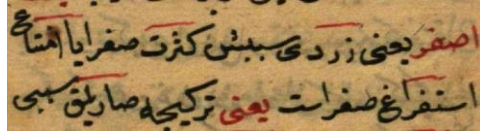 اصفر یعنی زردی سببش کثرت صفرا یا امتناع
استفراغ صفراست یعنی ترکیجه صاریلق سببی